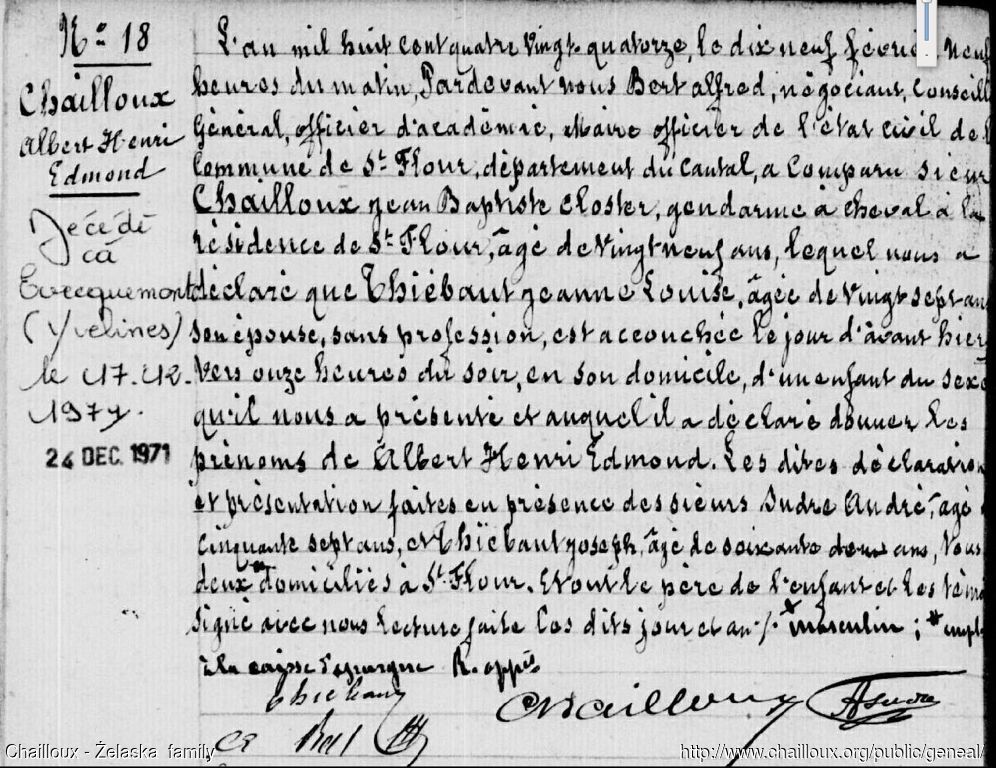 N° 18
Chailloux
Albert Henri
Edmond
Décédé
à
Evecquemont
(Yvelines)
le 17.12.
1971.
24 DEC. 1971
L'an mil huit cent quatre vingt-quatorze, le dix neuf févrie neuf
heures du matin, Pardevant nous Bert alfred, négociant, Conseill
Général, officier d'académie, Maire officier de l'état civil de l
Commune de St Flour, département du Cantal, a Comparu sieur
Chailloux Jean Baptiste Closter, gendarme à cheval à la
résidence de St Flour, âgé de vingt neuf ans, lequel nous a
déclaré que Thiébaut Jeanne Louise, âgée de vingt sept ans
son épouse, sans profession, est accouchée le jour d'avant hier
vers onze heures du soir, en son domicile, d'un enfant du sexe
qu'il nous a présenté et auquel il a déclaré donner les
prénoms de Albert Henri Edmond. Les dites déclaration
et présentation faites en présence des sieurs Sudre André, âgé
Cinquante sept ans, et Thiébaut Joseph, âgé de soixante deux ans, tous
deux domiciliés à St Flour. Et ont le père de l'enfant et les témo
signé avec nous lecture faite les dits jour et an ./. * masculin ; * empl
à la caisse d'épargne R. appés
Thiebaut
Chailloux
ASudre
Bert
Chailloux - Želaska family
http://www.chailloux.org/public/geneal/